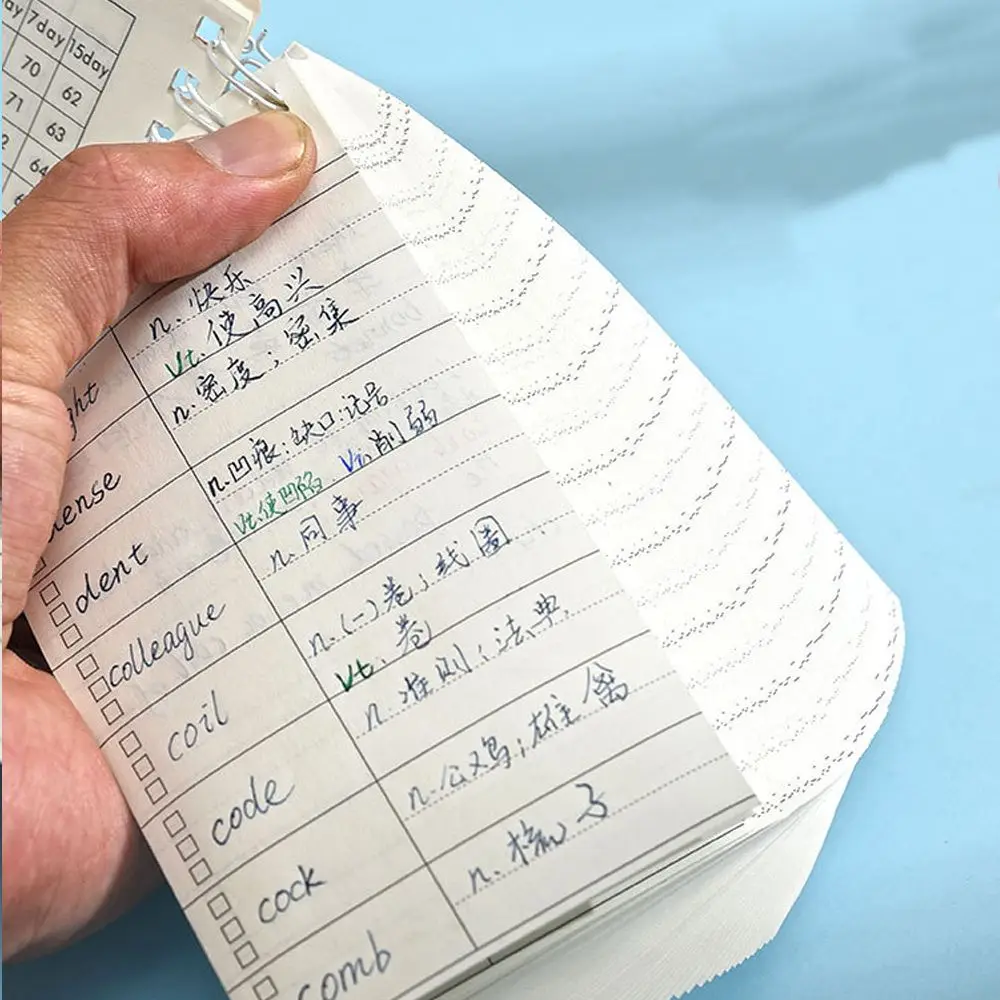 7day 15day
70 62
71 63
64
n. 快乐
ght Vt. 使高兴
ense n. 密度；密集
dent n. 凹痕；缺口；记号
Vt. 使凹陷 Vi. 削弱
colleague n. 同事
coil n. (一)卷；线圈
Vt. 卷
code n. 准则；法典
cock n. 公鸡；雄禽
comb n. 梳子